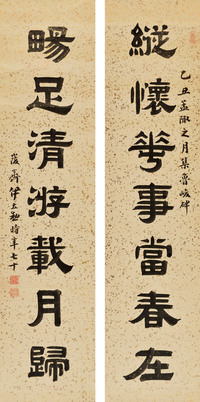 縱懷華事當春在
乙丑孟陬之月集魯峻碑
畼足清游載月歸
齋伊立勳時年七十